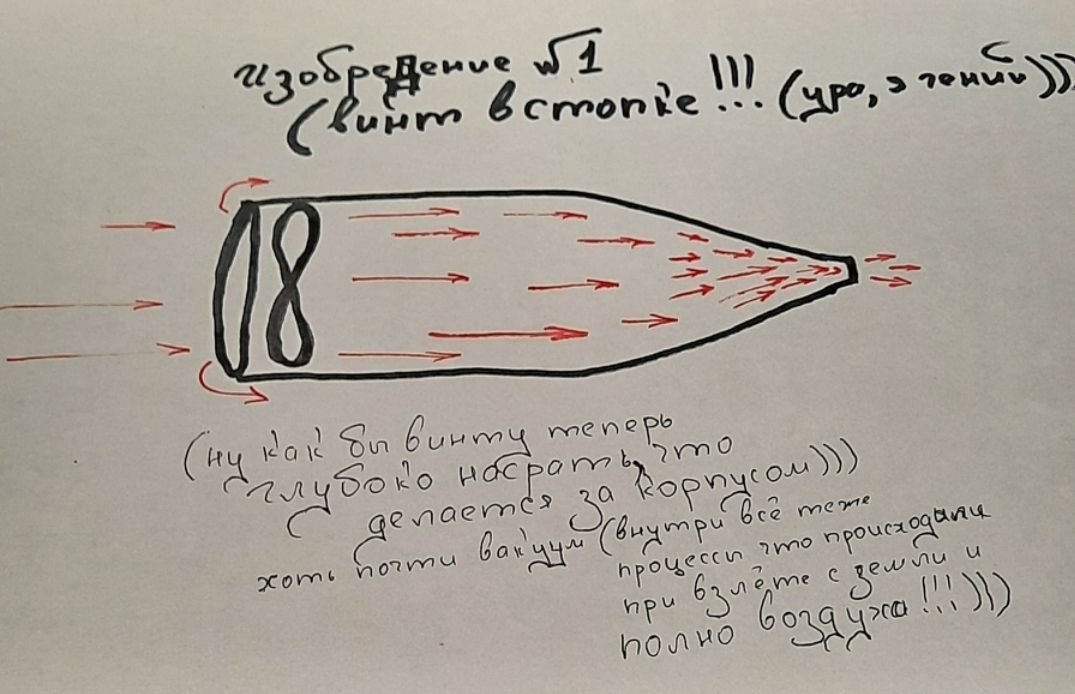 изобредение №1
(винт в стопке!!! (ура, э гений)))
(ну как бы винту теперь
глубоко насрать, что
делается за корпусом)))
(хоть почти вакуум (внутри всё теже
процессы что происходили
при взлёте с земли и
полно воздуха!!!)))